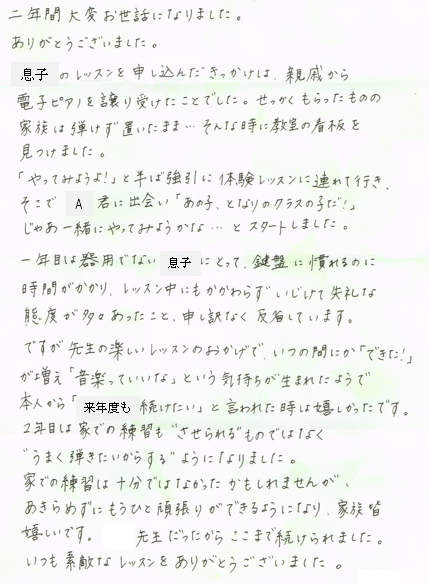 二年間大変お世話になりました。
ありがとうございました。
息子のレッスンを申し込んだきっかけは、親戚から
電子ピアノを譲り受けたことでした。せっかくもらったものの
家族は弾けず置いたまま…そんな時に教室の看板を
見つけました。
「やってみようよ!」と半ば強引に体験レッスンに連れて行き、
そこで A 君に出会い「あの子、となりのクラスの子だ!」
じゃあ一緒にやってみようかな…とスタートしました。
一年目は器用でない 息子 にとって、鍵盤に慣れるのに
時間がかかり、レッスン中にもかかわらずいじけて失礼な
態度が多々あったこと、申し訳なく反省しています。
ですが先生の楽しいレッスンのおかげで、いつの間にか「できた!」
が増え「音楽っていいな」という気持ちが生まれたようで
本人から「来年度も続けたい」と言われた時は嬉しかったです。
2年目は家での練習も"させられる"ものではなく
"うまく弾きたいからする"ようになりました。
家での練習は十分ではなかったかもしれませんが、
あきらめずにもうひと頑張りができるようになり、家族皆
嬉しいです。 先生だったからここまで続けられました。
いつも素敵なレッスンをありがとうございました。